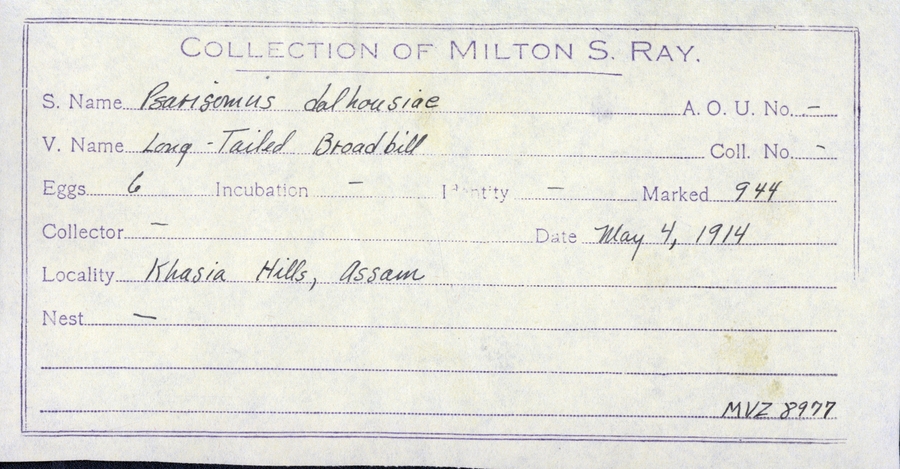 COLLECTION OF MILTON S. RAY.
S. Name Psarisomus dalhousiae A. O. U. No. -
V. Name Long-Tailed Broadbill Coll. No. -
Eggs 6 Incubation - Identity - Marked 944
Collector - Date May 4, 1914
Locality Khasia Hills, Assam
Nest -
MVZ 8977